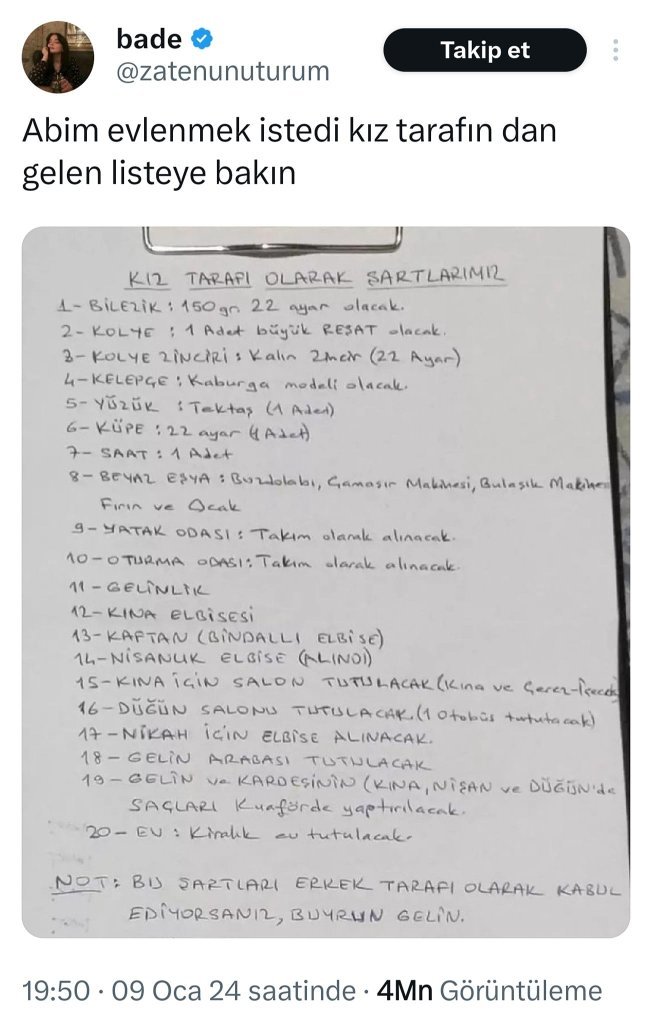 bade
Takip et
@zatenunuturum
Abim evlenmek istedi kız tarafın dan
gelen listeye bakın
KIZ TARAFI OLARAK ŞARTLARIMIZ
1- BİLEZİK : 150 gr 22 ayar olacak.
2- KOLYE : 1 Adet büyük REŞAT olacak.
3- KOLYE ZİNCİRİ : Kalın Zincir (22 Ayar)
4- KELEPÇE : Kaburga modeli olacak.
5- YÜZÜK : Tektaş (1 Adet)
6- KÜPE : 22 ayar (1 Adet)
7- SAAT : 1 Adet
8- BEYAZ EŞYA : Buzdolabı, Çamaşır Makinesi, Bulaşık Makines
Fırın ve Ocak
9- YATAK ODASI : Takım olarak alınacak.
10- OTURMA ODASI : Takım olarak alınacak.
11- GELİNLİK
12- KINA ELBİSESİ
13- KAFTAN (BİNDALLI ELBİSE)
14- NİŞANLIK ELBİSE (ALINDI)
15- KINA İÇİN SALON TUTULACAK (Kına ve Çerez-İçecek
16- DÜĞÜN SALONU TUTULACAK. (1 Otobüs tutulacak)
17- NİKAH İÇİN ELBİSE ALINACAK.
18- GELİN ARABASI TUTULACAK
19- GELİN ve KARDEŞİNİN (KINA, NİŞAN ve DÜĞÜN'de
SAÇLARI Kuaförde yaptırılacak.
20- EV : Kiralık ev tutulacak.
NOT: BU ŞARTLARI ERKEK TARAFI OLARAK KABUL
EDİYORSANIZ, BUYRUN GELİN.
19:50 · 09 Oca 24 saatinde · 4Mn Görüntüleme